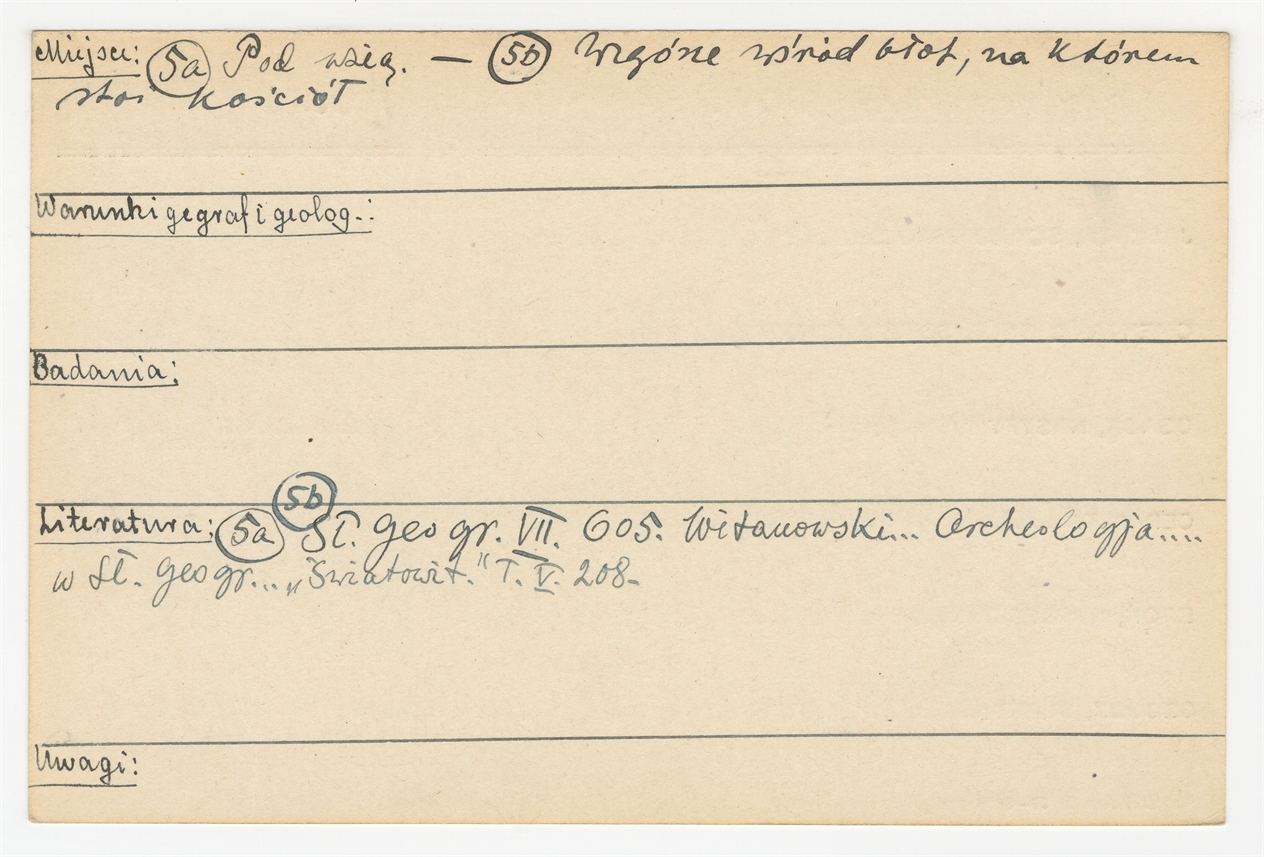 Miejsce: 5a Pod wsią. — 5b Wzgórze wśród błot, na którem
stoi kościół
Warunki gegraf i geolog.:
Badania:
5b
Literatura: 5a Sł. geogr. VII. 605. Witanowski... Archeologja.....
w Sł. geogr... „Światowit." T. V. 208.
Uwagi: